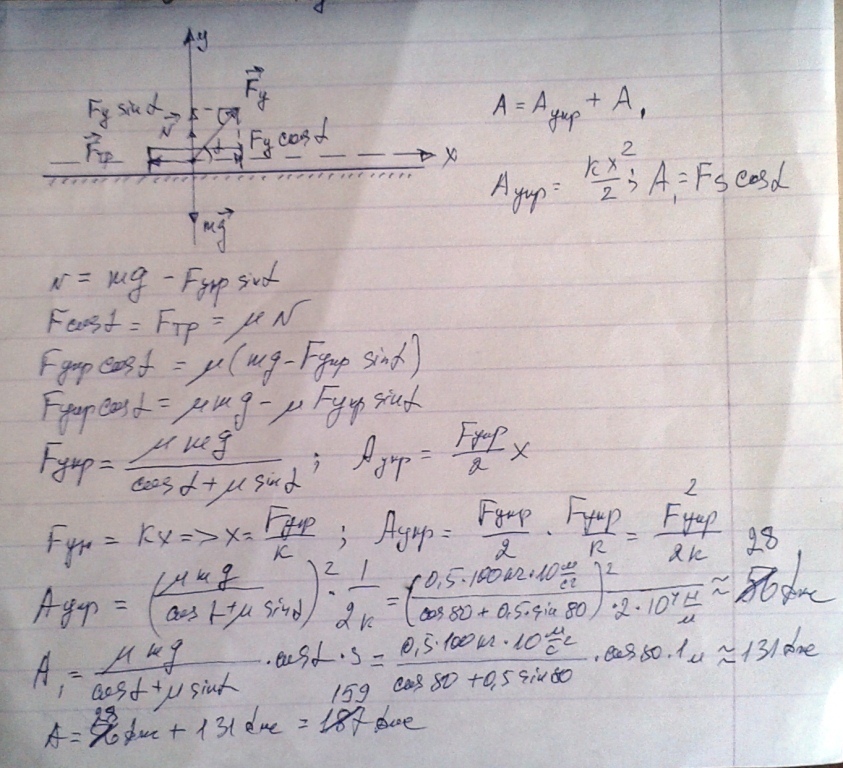 y
F⃗у
Fу sinα
N⃗
Fу cosα
α
F⃗тр
x
mg⃗
A = Aупр + A₁
Aупр = kx²/2 ; A₁ = Fs cosα
N = mg − Fупр sinα
Fcosα = Fтр = μN
Fупр cosα = μ(mg − Fупр sinα)
Fупр cosα = μmg − μ Fупр sinα
Fупр = μmg/(cosα + μ sinα) ; Aупр = Fупр/2 x
Fуп = Kx => x = Fупр/k ; Aупр = Fупр/2 · Fупр/k = F²упр/2k
Aупр = (μmg/(cosα + μ sinα))² · 1/2k = (0,5·100кг·10 м/с²/(cos80 + 0,5·sin80))² · 2·10⁴ Н/м ≈ 28 Дж
A₁ = μmg/(cosα + μ sinα) · cosα · s = 0,5·100кг·10 м/с²/(cos80 + 0,5 sin80) · cos80 · 1м ≈ 131 Дж
A = 28 Дж + 131 Дж = 159 Дж